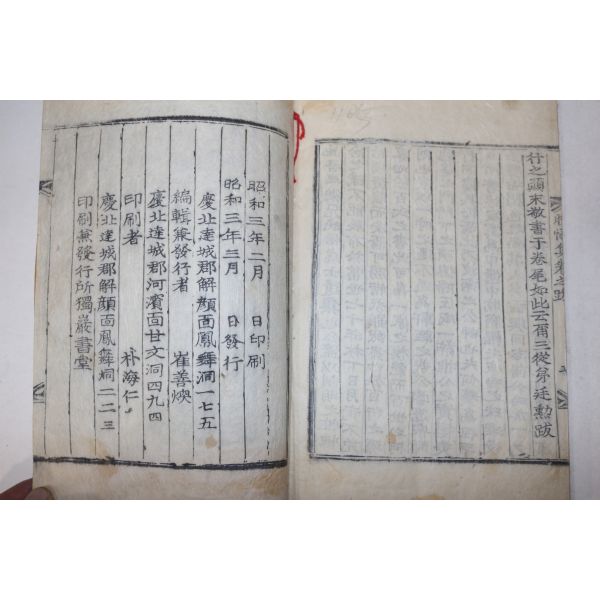 行之顚末敢書于卷尾如此云爾三從弟廷勳跋
昭和三年二月　日印刷
昭和三年三月　日發行
慶北達城郡解顔面鳳舞洞一七五
編輯兼發行者　崔善煥
慶北達城郡河濱面甘文洞四九四
印刷者　朴海仁
慶北達城郡解顔面鳳舞洞一二三
印刷兼發行所獨巖書堂